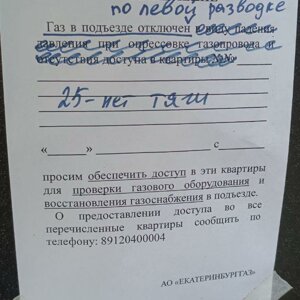 по левой разводке
Газ в подъезде отключен в виду падения
давления при опрессовке газопровода и
отсутствия доступа в квартиры №№
25-нет тяги
«____» ____________ с____
просим обеспечить доступ в эти квартиры
для проверки газового оборудования и
восстановления газоснабжения в подъезде.
О предоставлении доступа во все
перечисленные квартиры сообщить по
телефону: 89120400004
АО «ЕКАТЕРИНБУРГГАЗ»